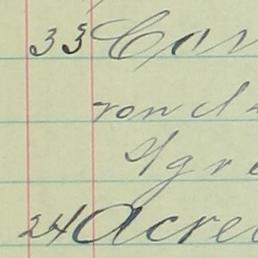 33 Con
ron d
Agre
24 Acre